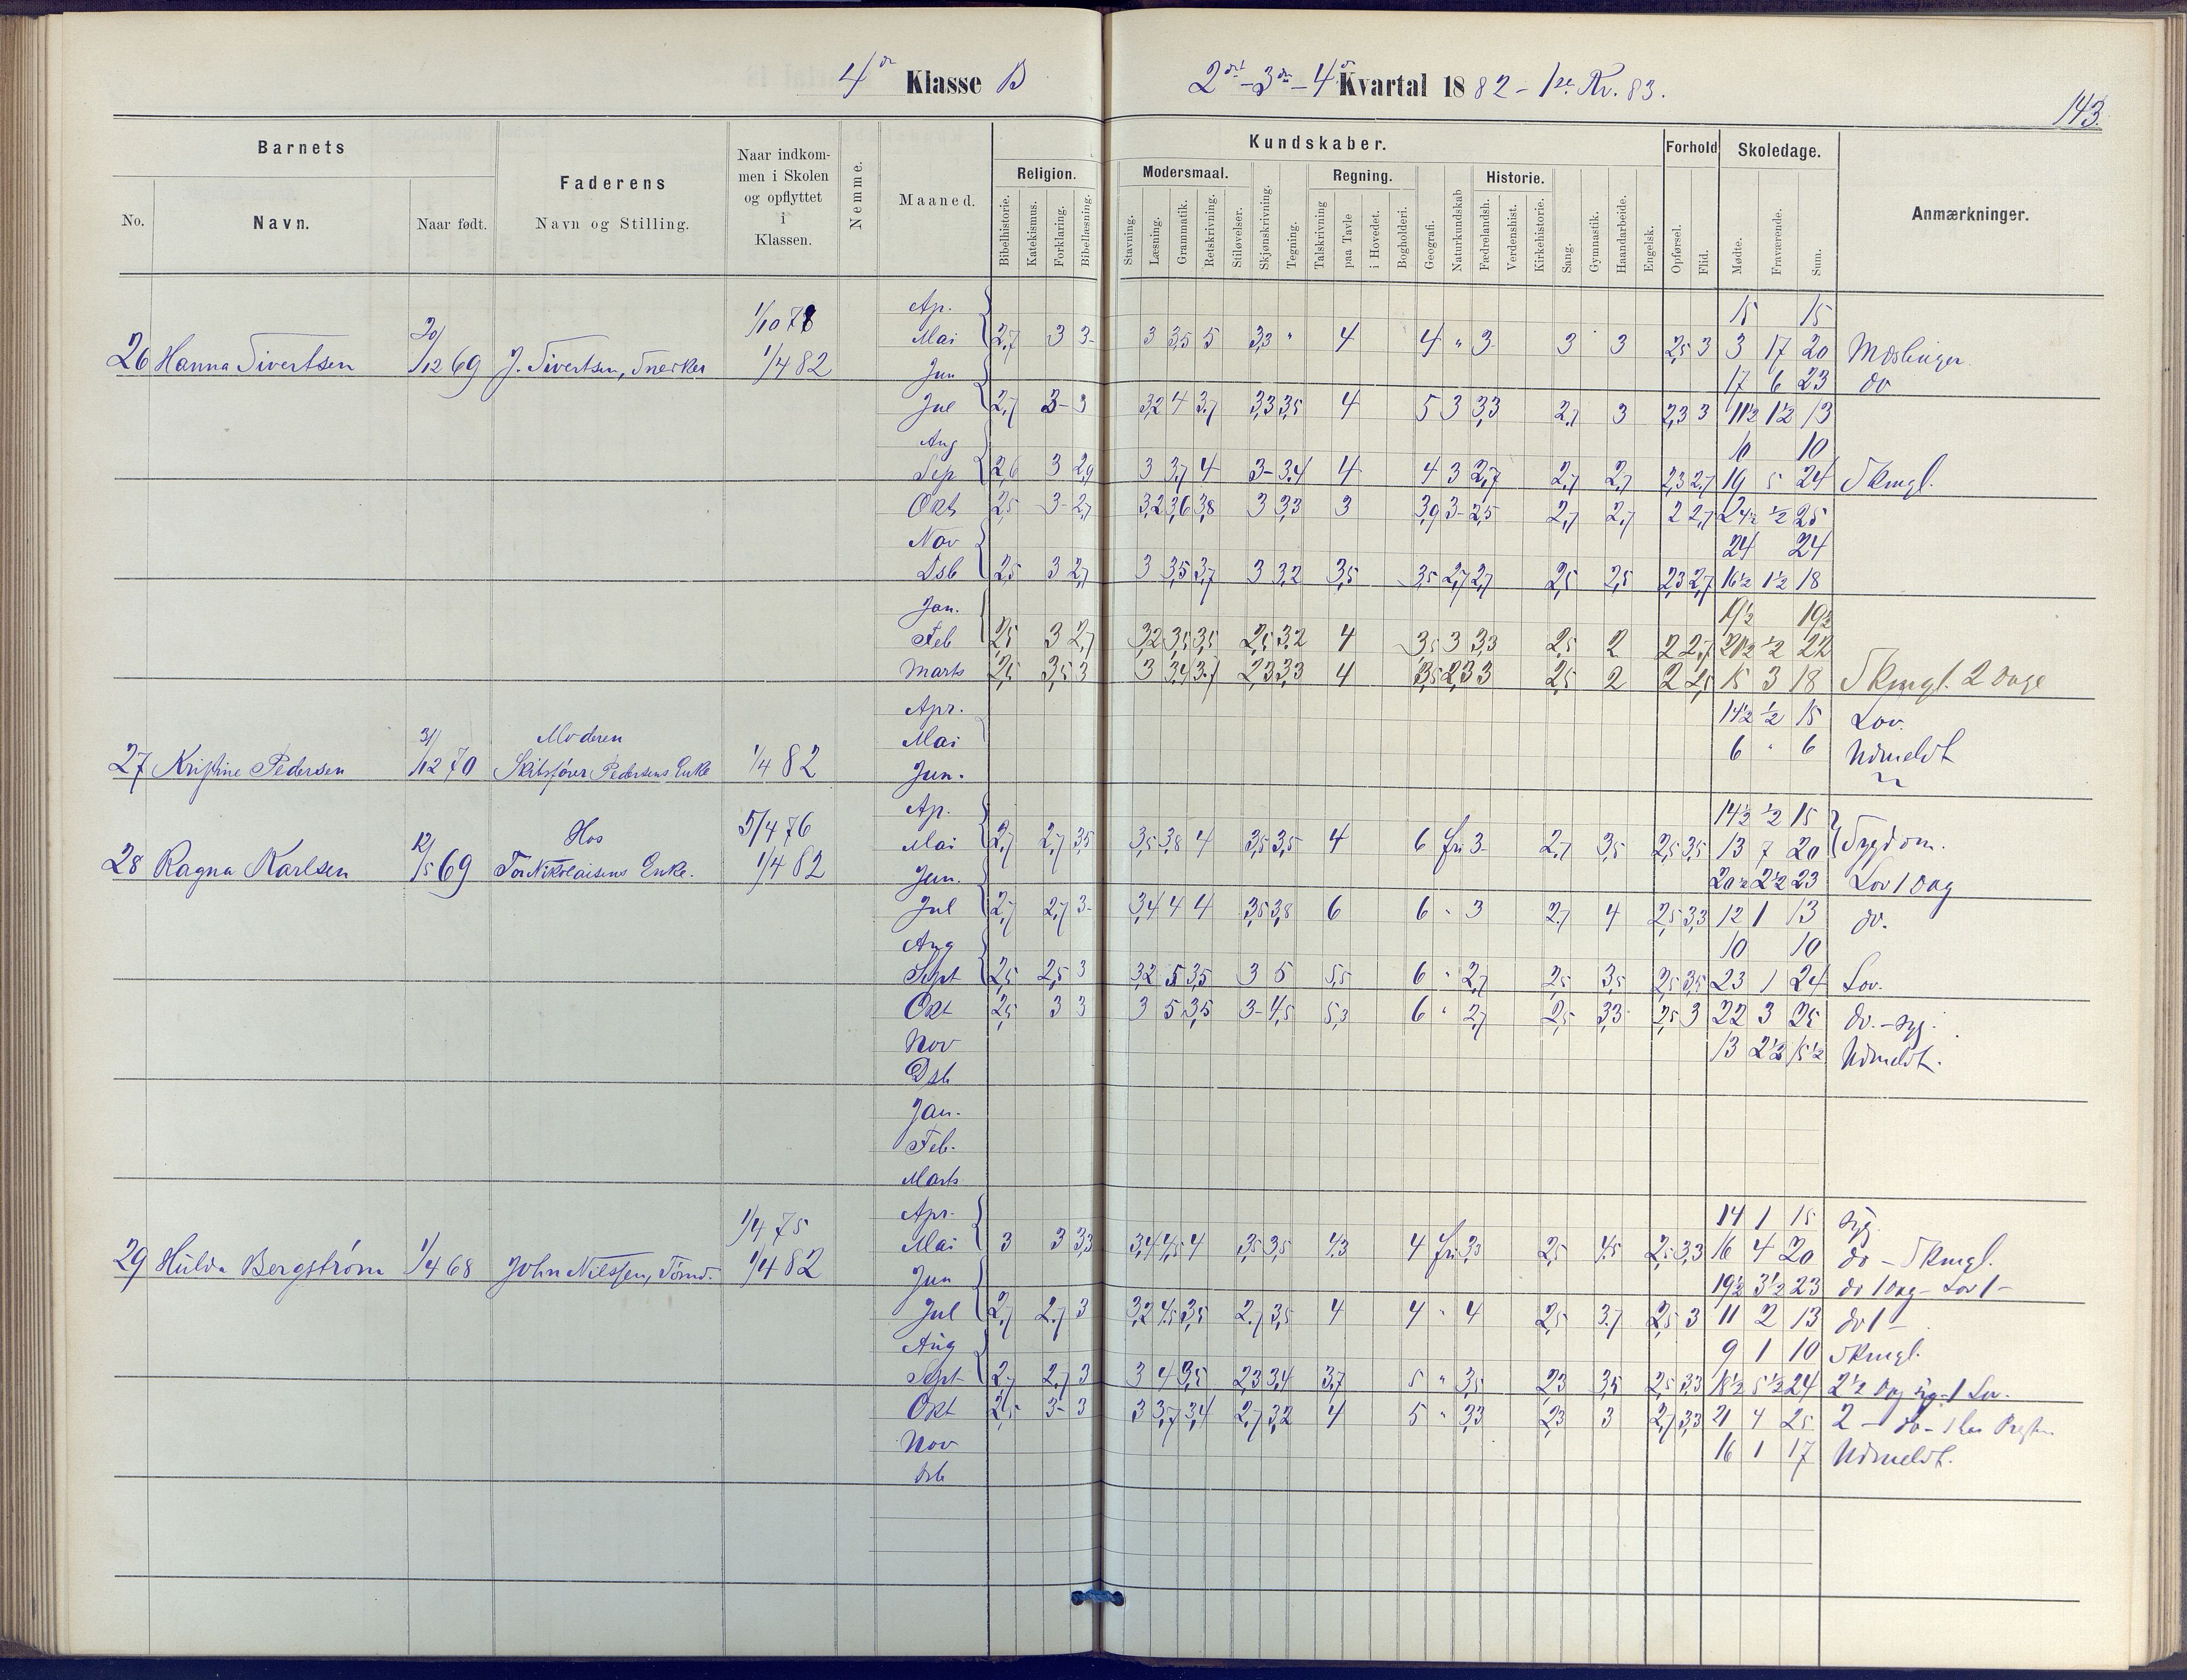 4de Klasse B
2det - 3de - 4de Kvartal 1882 - 1ste Kv. 83.
143.
Barnets
Faderens
Naar indkommen i Skolen og opflyttet i Klassen.
Nemme.
Maaned.
Kundskaber.
Forhold
Skoledage.
Anmærkninger.
No. Navn. Naar født. Navn og Stilling.
Religion. Modersmaal. Regning. Historie.
Bibelhistorie. Katekismus. Forklaring. Bibellæsning. Stavning. Læsning. Grammatik. Retskrivning. Stiløvelser. Skjønskrivning. Tegning. Talskrivning paa Tavle i Hovedet. Bogholderi. Geografi. Naturkundskab Fædrelandsh. Verdenshist. Kirkehistorie. Sang. Gymnastik. Haandarbeide. Engelsk. Opførsel. Flid. Mødte. Fraværende. Sum.
1/10 78 Ap. 15 15
26 Hanna Sivertsen 20/12 69 J. Sivertsen, Snerker 1/4 82 Mai 2,7 3 3- 3 3,5 5 3,3 " 4 4 " 3 3 3 2,5 3 3 17 20 Mæslinger.
Jun 17 6 23 do
Jul 2,7 3- 3 3,2 4 3,7 3,3 3,5 4 5 3 3,3 2,7 3 2,3 3 11½ 1½ 13
Aug 10 10
Sep 2,6 3 2,9 3 3,7 4 3- 3,4 4 4 3 2,7 2,7 2,7 2,3 2,7 19 5 24 Skmgl.
Okt 2,5 3- 2,7 3,2 3,6 3,8 3 3,3 3 3,9 3- 2,5 2,7 2,7 2 2,7 24½ ½ 25
Nov 24 24
Dsb 2,5 3 2,7 3 3,5 3,7 3 3,2 3,5 3,5 2,7 2,7 2,5 2,5 2,3 2,7 16½ 1½ 18
Jan. 19½ 19½
Feb 2,5 3 2,7 3,2 3,5 3,5 2,5 3,2 4 3,5 3 3,3 2,5 2 2 2,7 21½ ½ 22
Marts 2,5 3,5 3 3 3,4 3,7 2,3 3,3 4 3,5 2,3 3 2,5 2 2 2,5 15 3 18 Skmgl. 2 Dage
Apr. 14½ ½ 15 Lov.
Moderen Mai 6 " 6 Udmeldt
27 Kristine Pedersen 31/12 70 Skibsfører Pedersens Enke 1/4 82 Jun.
5/4 76 Ap. 14½ ½ 15
Hos Mai 2,7 2,7 3,5 3,5 3,8 4 3,5 3,5 4 6 fri 3- 2,7 3,5 2,5 3,5 13 7 20 Sygdom.
28 Ragna Karlsen 12/5 69 Nikolaisens Enke. 1/4 82 Jun. 20½ 2½ 23 Lov 1 Dag
Jul 2,7 2,7 3- 3,4 4 4 3,5 3,8 6 6 " 3 2,7 4 2,5 3,3 12 1 13 do.
Aug 10 10
Sept 2,5 2,5 3 3,2 5 3,5 3 5 5,5 6 " 2,7 2,5 3,5 2,5 3,5 23 1 24 Lov.
Okt 2,5 3 3 3 5 3,5 3- 4,5 5,3 6 " 2,7 2,5 3,3 2,5 3 22 3 25 do. - syg.
Nov 13 2½ 15½ Udmeldt.
Dsb
Jan.
Feb.
Marts
1/4 75 Apr. 14 1 15 syg.
29 Hulda Bergstrøm 1/4 68 John Nilssen, Tømd. 1/4 82 Mai 3 3 3,3 3,4 4,5 4 3,5 3,5 4,3 4 fri 3,3 2,5 4,5 2,5 3,3 16 4 20 do - Skmgl.
Jun 19½ 3½ 23 do 1 Dag - Lov 1 -
Jul 2,7 2,7 3 3,2 4,5 3,5 2,7 3,5 4 4 " 4 2,5 3,7 2,5 3 11 2 13 do 1 -
Aug 9 1 10 Skmgl.
Sept 2,7 2,7 3 3 4 3,5 2,3 3,4 3,7 5 " 3,5 2,3 3,5 2,5 3,3 18½ 5½ 24 2½ Dag syg - 1 Lov.
Okt 2,5 3- 3 3 3,7 3,4 2,7 3,2 4 5 " 3,3 2,3 3 2,7 3,3 21 4 25 2 - do - 1 hos Presten
Nov 16 1 17 Udmeldt.
Dsb